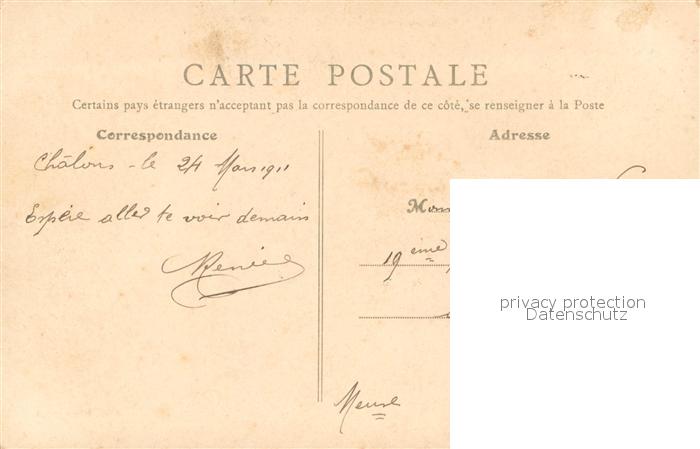 CARTE POSTALE
Certains pays étrangers n'acceptant pas la correspondance de ce côté, se renseigner à la Poste
Correspondance
Adresse
Châlons - le 24 Mars 1911
Espère aller te voir demain
Renée
19 ème
Meuse
privacy protection
Datenschutz